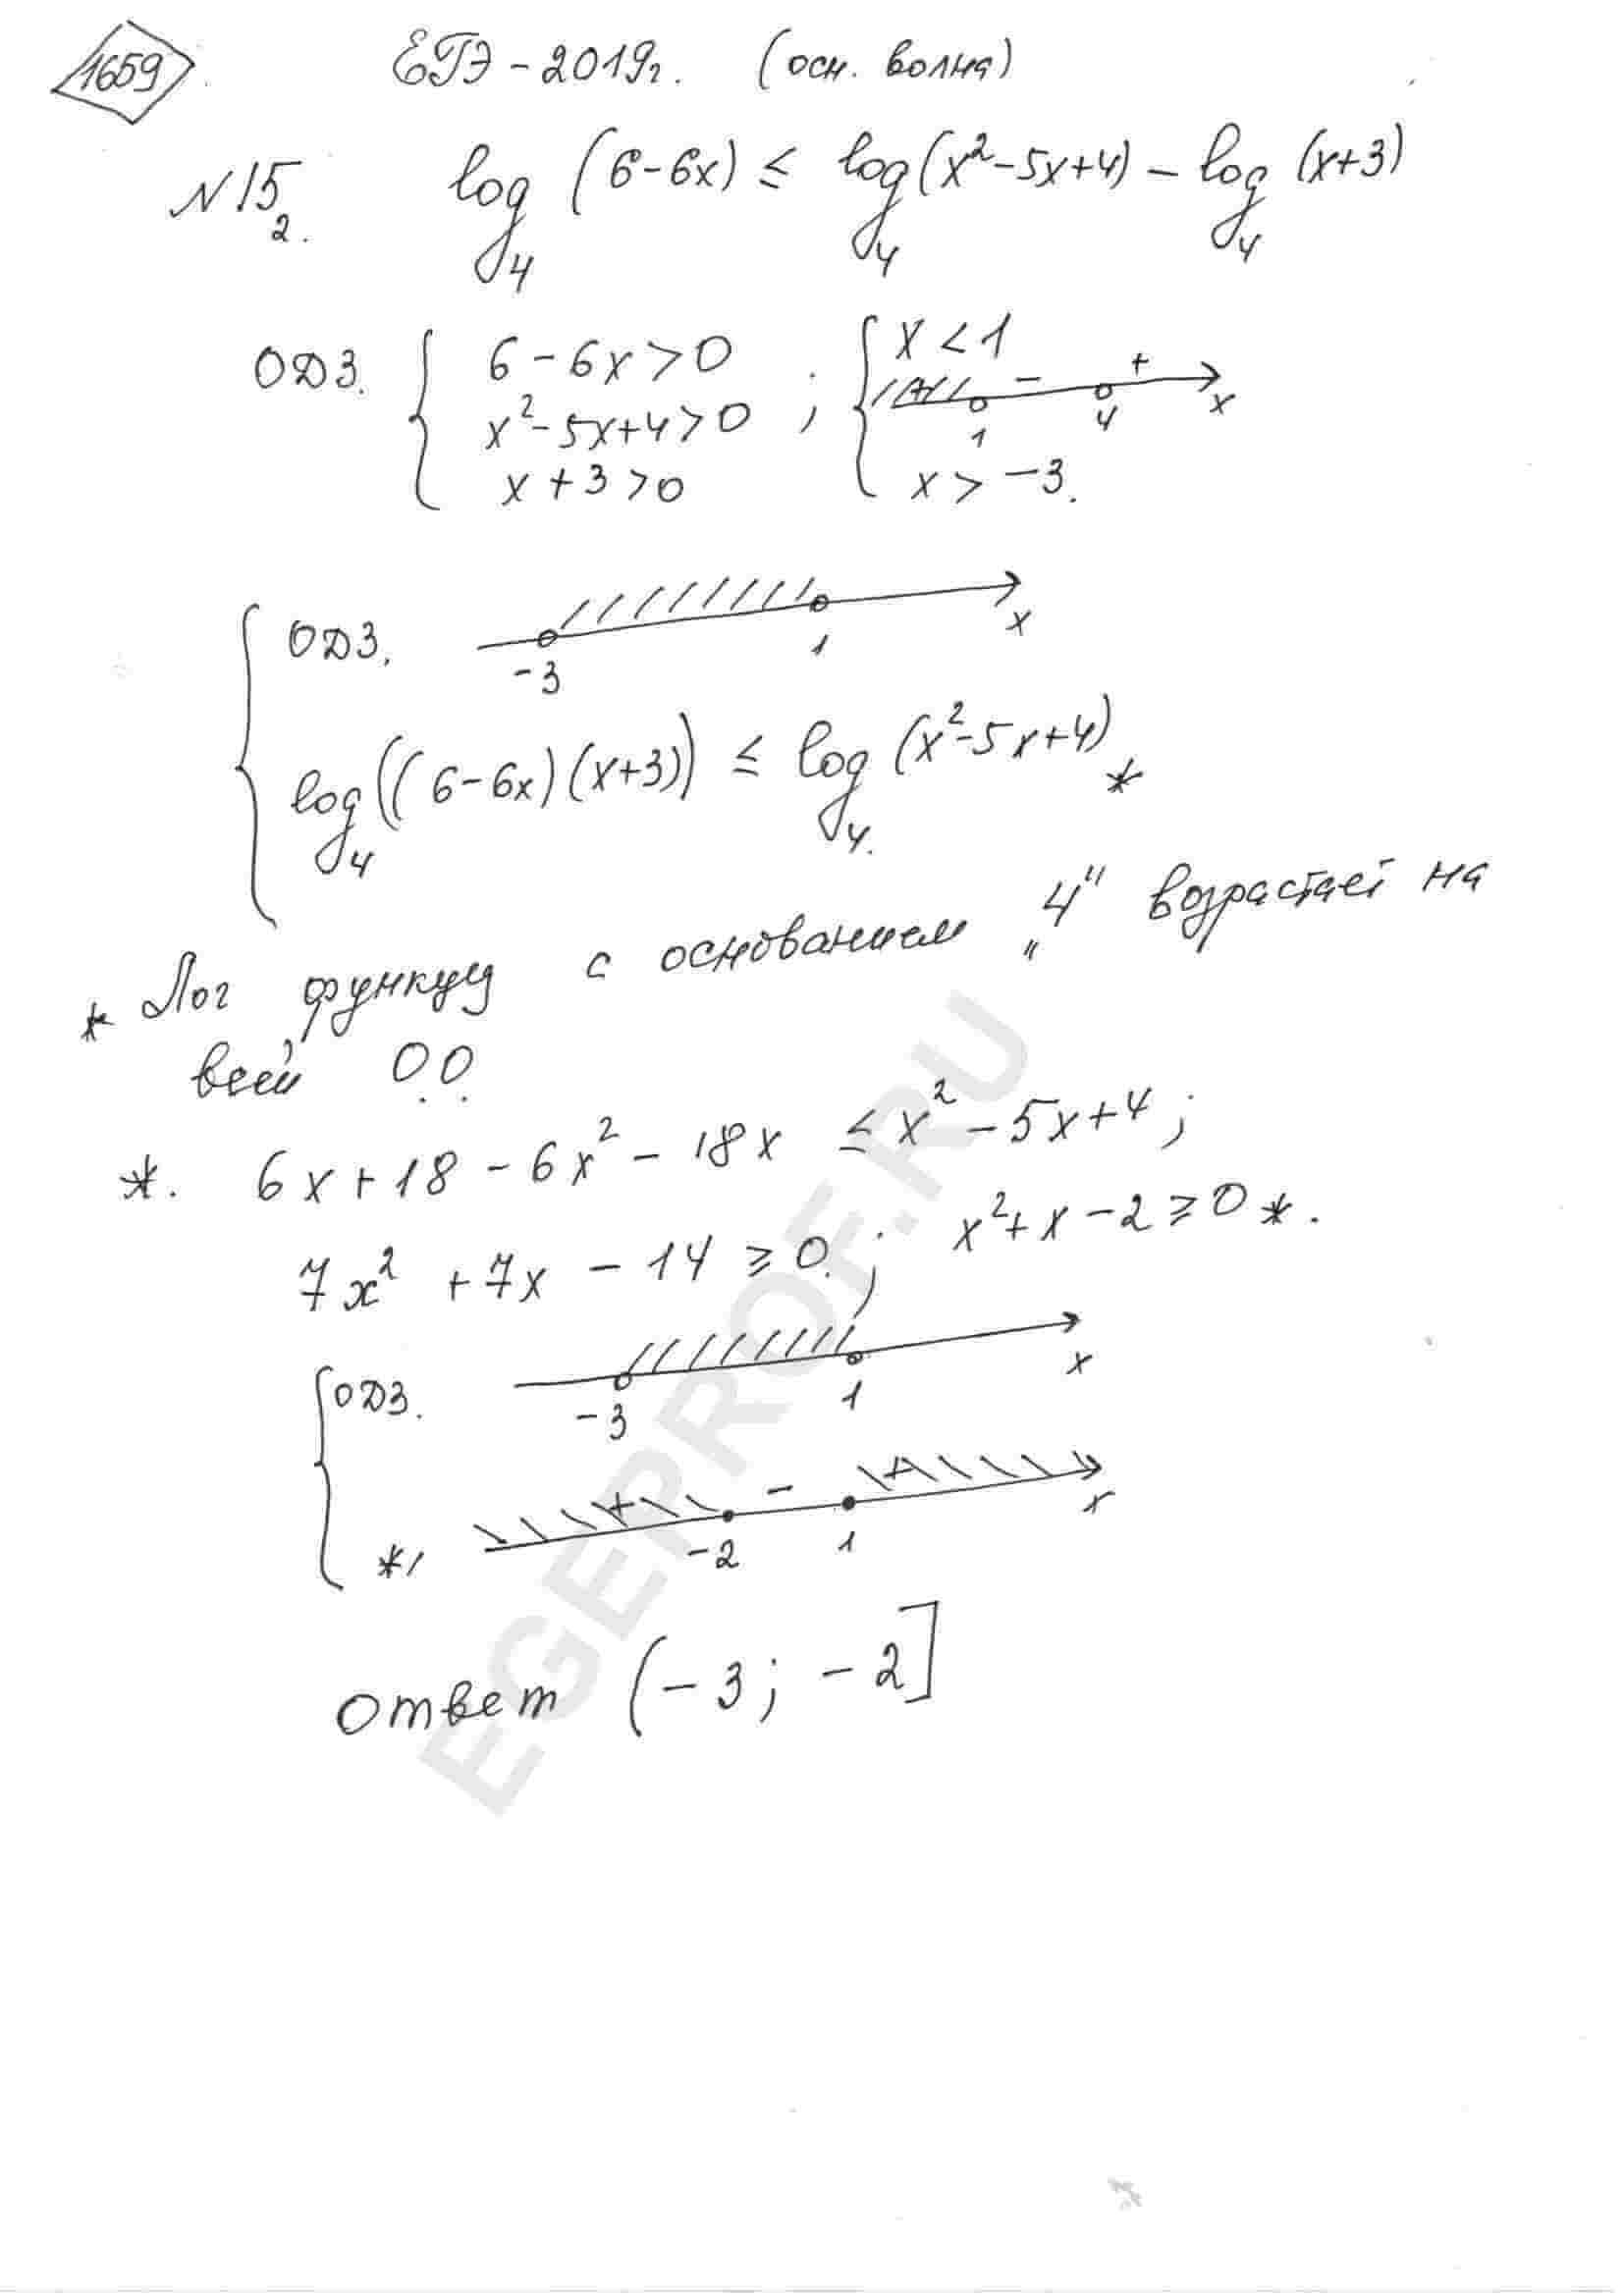 1659 ЕГЭ-2019г. (осн. волна)
N15 2. log₄(6-6x) ≤ log₄(x²-5x+4) - log₄(x+3)
ОДЗ. { 6-6x>0 ; { x<1
x²-5x+4>0 + - + 1 4 x
x+3>0 x>-3.
{ ОДЗ. -3 1 x
log₄((6-6x)(x+3)) ≤ log₄.(x²-5x+4) *
* Лог функция с основанием „4" возрастает на
всей О.О.
*. 6x+18-6x²-18x ≤ x²-5x+4;
7x²+7x-14≥0.; x²+x-2≥0 *.
{ ОДЗ. -3 1 x
*/ + - + -2 1 x
ответ (-3; -2]
EGEPROF.RU